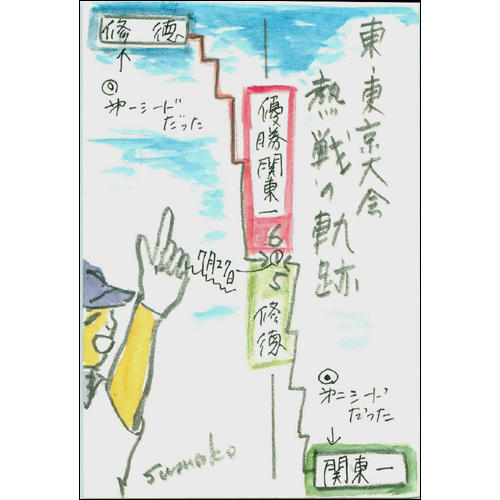 東・東京大会
熱戦の軌跡
修 徳
第一シード
だった
優勝関東一
6
①
5
修徳
7月27日
第二シード
だった
関東一
sumoko